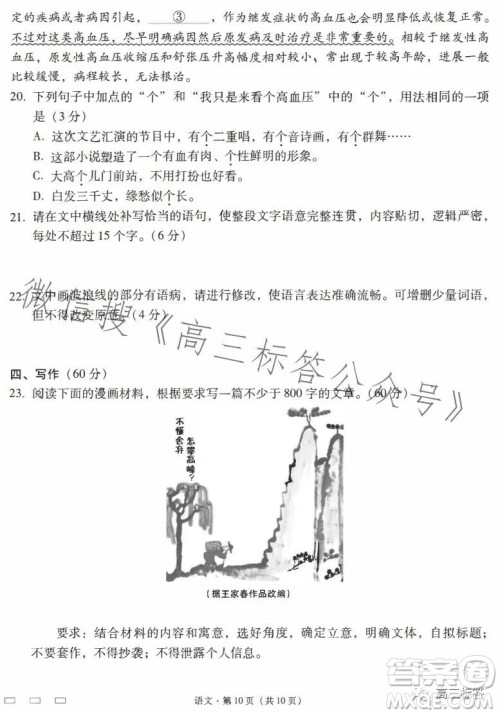 定的疾病或者病因引起，③，作为继发症状的高血压也会明显降低或恢复正常。
不过对这类高血压，尽早明确病因然后原发病及时治疗是非常重要的。相较于继发性高
血压，原发性高血压收缩压和舒张压升高幅度相对更小、常出现于较高年龄，进展也
比较缓慢，病程较长，无法根治。
20. 下列句子中加点的“个”和“我只是来看个高血压”中的“个”，用法相同的一项
是（3 分）
A. 这次文艺汇演的节目里，有个二重唱，有个音诗画，有个群舞……
B. 这部小说塑造了一个有血有肉、个性鲜明的形象。
C. 高个大儿门前站，不用打扮也好看。
D. 白发三千丈，缘愁似个长。
21. 请在文中横线处补写恰当的语句，使整段文字语意完整连贯，内容贴切，逻辑严密，
每处不超过 15 个字。（6 分）
22. 文中画波浪线的部分有语病，请进行修改，使语言表达准确流畅。可增删少量词语，
但不得改变原意。（4 分）
四、写作（60 分）
23. 阅读下面的漫画材料，根据要求写一篇不少于 800 字的文章。（60 分）
不懂舍弃
怎攀高峰？
（据王家春作品改编）
要求：结合材料的内容和寓意，选好角度，确定立意，明确文体，自拟标题；
不得抄袭；不得泄露个人信息。
语文·第 10 页（共 10 页）
微信搜《高三标答公众号》
答案圈
高三标答